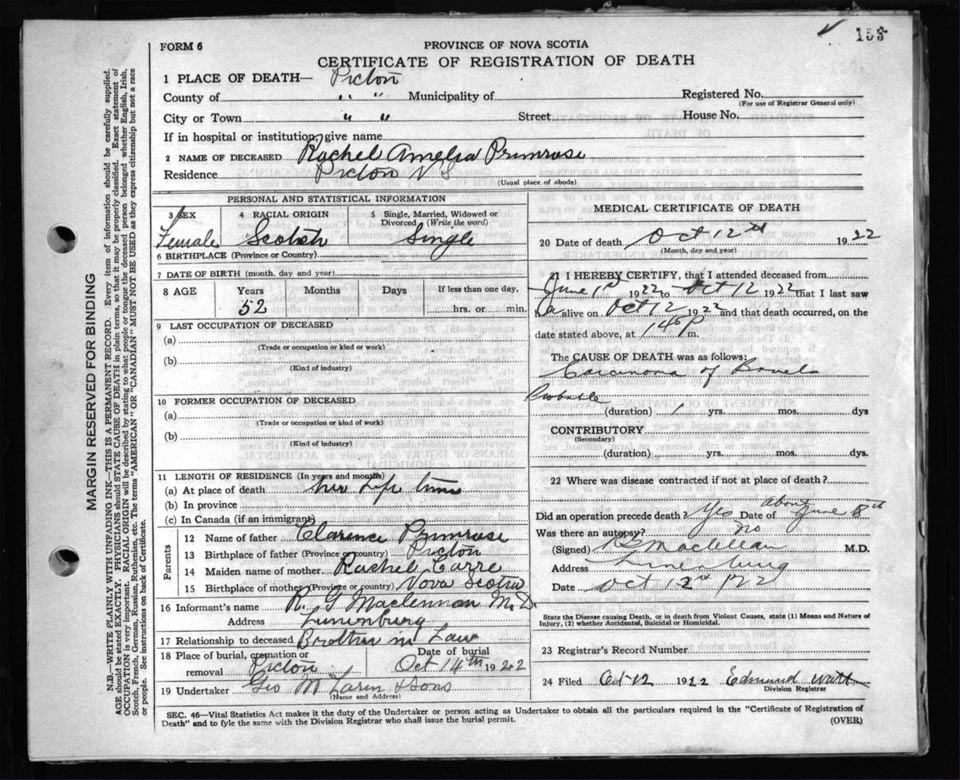 155
FORM 6
PROVINCE OF NOVA SCOTIA
CERTIFICATE OF REGISTRATION OF DEATH
1 PLACE OF DEATH— Pictou
County of " " Municipality of Registered No.
(For use of Registrar General only)
City or Town " " Street House No.
If in hospital or institution, give name
2 NAME OF DECEASED Rachel Amelia Primrose
Residence Pictou N S
(Usual place of abode)
PERSONAL AND STATISTICAL INFORMATION
3 SEX 4 RACIAL ORIGIN 5 Single, Married, Widowed or Divorced (Write the word)
Female Scotch Single
6 BIRTHPLACE (Province or Country)
7 DATE OF BIRTH (month, day and year)
8 AGE Years Months Days If less than one day,
52 hrs. or min.
9 LAST OCCUPATION OF DECEASED
(a)
(Trade or occupation or kind or work)
(b)
(Kind of industry)
10 FORMER OCCUPATION OF DECEASED
(a)
(Trade or occupation or kind of work)
(b)
(Kind of industry)
11 LENGTH OF RESIDENCE (In years and months)
(a) At place of death her Life time
(b) In province
(c) In Canada (if an immigrant)
Parents
12 Name of father Clarence Primrose
13 Birthplace of father (Province or Country) Pictou
14 Maiden name of mother Rachel Carre
15 Birthplace of mother (Province or country) Nova Scotia
16 Informant's name R. G Maclennan M.D.
Address Lunenburg
17 Relationship to deceased Brother in Law
18 Place of burial, cremation or removal Pictou Date of burial Oct 14th 1922
19 Undertaker Geo M Larin & Sons
(Name and Address)
MEDICAL CERTIFICATE OF DEATH
20 Date of death Oct 12th 1922
(Month, day and year)
I HEREBY CERTIFY, that I attended deceased from
June 1st 1922 to Oct 12 1922 that I last saw
alive on Oct 12 1922 and that death occurred, on the
date stated above, at P
The CAUSE OF DEATH was as follows:
Carcinoma of Bowel
Probable
(duration) 1 yrs. mos. dys
CONTRIBUTORY
(Secondary)
(duration) yrs. mos. dys.
22 Where was disease contracted if not at place of death?
Did an operation precede death? Yes Date of about June 8th
Was there an autopsy? No
(Signed) Maclellan M.D.
Address Lunenburg
Date Oct 122
State the Disease causing Death, or in death from Violent Causes, state (1) Means and Nature of
Injury, (2) whether Accidental, Suicidal or Homicidal.
23 Registrar's Record Number
24 Filed Oct 12 1922 Edmund Watt
Division Registrar
SEC. 46—Vital Statistics Act makes it the duty of the Undertaker or person acting as Undertaker to obtain all the particulars required in the "Certificate of Registration of
Death" and to fyle the same with the Division Registrar who shall issue the burial permit.
(OVER)
MARGIN RESERVED FOR BINDING
N.B.—WRITE PLAINLY WITH UNFADING INK—THIS IS A PERMANENT RECORD. Every item of information should be carefully supplied.
AGE should be stated EXACTLY. PHYSICIANS should STATE CAUSE OF DEATH in plain terms, so that it may be properly classified. Exact statement of
OCCUPATION is very important. RACIAL ORIGIN will be described by stating to what people or tongue the deceased person belonged whether English, Irish,
Scotch, French, German, Russian, Ruthenian, etc. The terms "AMERICAN" or "CANADIAN" MUST NOT BE USED as they express citizenship but not a race
or people. See instructions on back of Certificate.